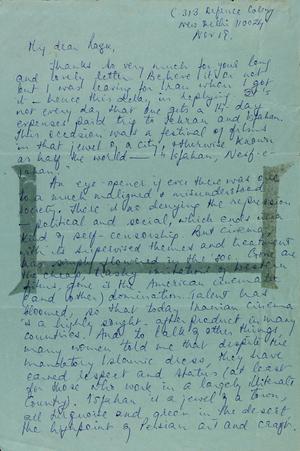 C 313 Defence Colony
New Delhi 110024
Nov 19.
My dear Ragu,
Thanks so very much for your long
and lovely letter. Believe it or not
but I was leaving for Iran when I got
it – hence this delay in replying. It's
not every day that one gets a 14 day
expenses paid trip to Tehran and Isfahan.
This occasion was a festival of films
in that jewel of a city, otherwise known
as half the world — "Isfahan, Nesf-e-
Jahan".
An eye-opener if ever there was one
to a much maligned & misunderstood
society. There's no denying the repression
– political and social, which ends in a
kind of self-censorship. But cinema
with its supervised themes and treatment
has simply flowered in the 80s. Gone are
the cheap, trashy imitations of western
films, gone is the American cinematic
(and other) domination. Talent had
bloomed, so that today Iranian cinema
is a highly sought-after product in many
countries. And to talk of other things,
many women told me that despite the
mandatory Islamic dress, they have
earned respect and status (at least
for those who work in a largely illiterate
country). Isfahan is a jewel of a town,
all turquoise and green in the desert
the highpoint of Persian art and craft.